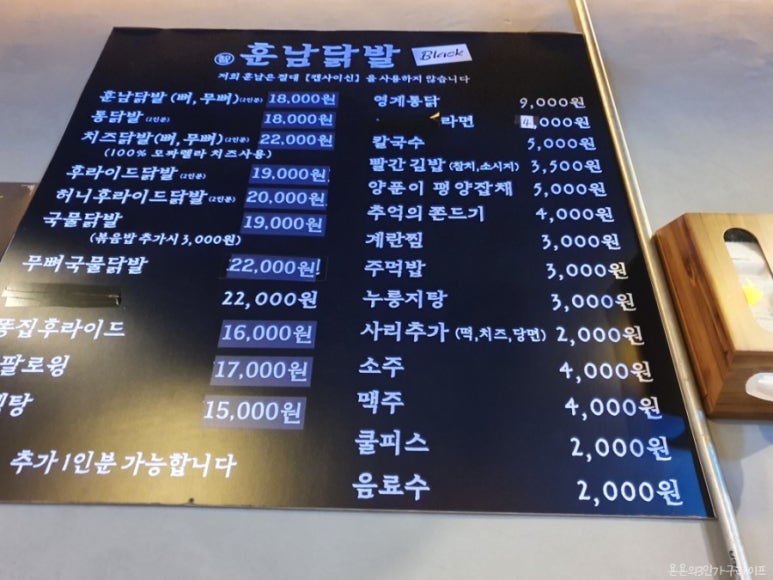 훈남닭발 Black
저희 훈남은 절대 [캡사이신] 을 사용하지 않습니다
훈남닭발 (뼈, 무뼈) (2인분) 18,000원
통닭발 (2인분) 18,000원
치즈닭발 (뼈, 무뼈) (2인분) 22,000원
(100% 모짜렐라 치즈사용)
후라이드닭발 (2인분) 19,000원
허니후라이드닭발 (2인분) 20,000원
국물닭발 19,000원
(볶음밥 추가시 3,000원)
무뼈국물닭발 22,000원!
22,000원
똥집후라이드 16,000원
팔로윙 17,000원
탕 15,000원
추가 1인분 가능합니다
영계통닭 9,000원
라면 4,000원
칼국수 5,000원
빨간김밥 (참치,소시지) 3,500원
양푼이 평양잡채 5,000원
추억의 쫀드기 4,000원
계란찜 3,000원
주먹밥 3,000원
누룽지탕 3,000원
사리추가 (떡,치즈,당면) 2,000원
소주 4,000원
맥주 4,000원
쿨피스 2,000원
음료수 2,000원